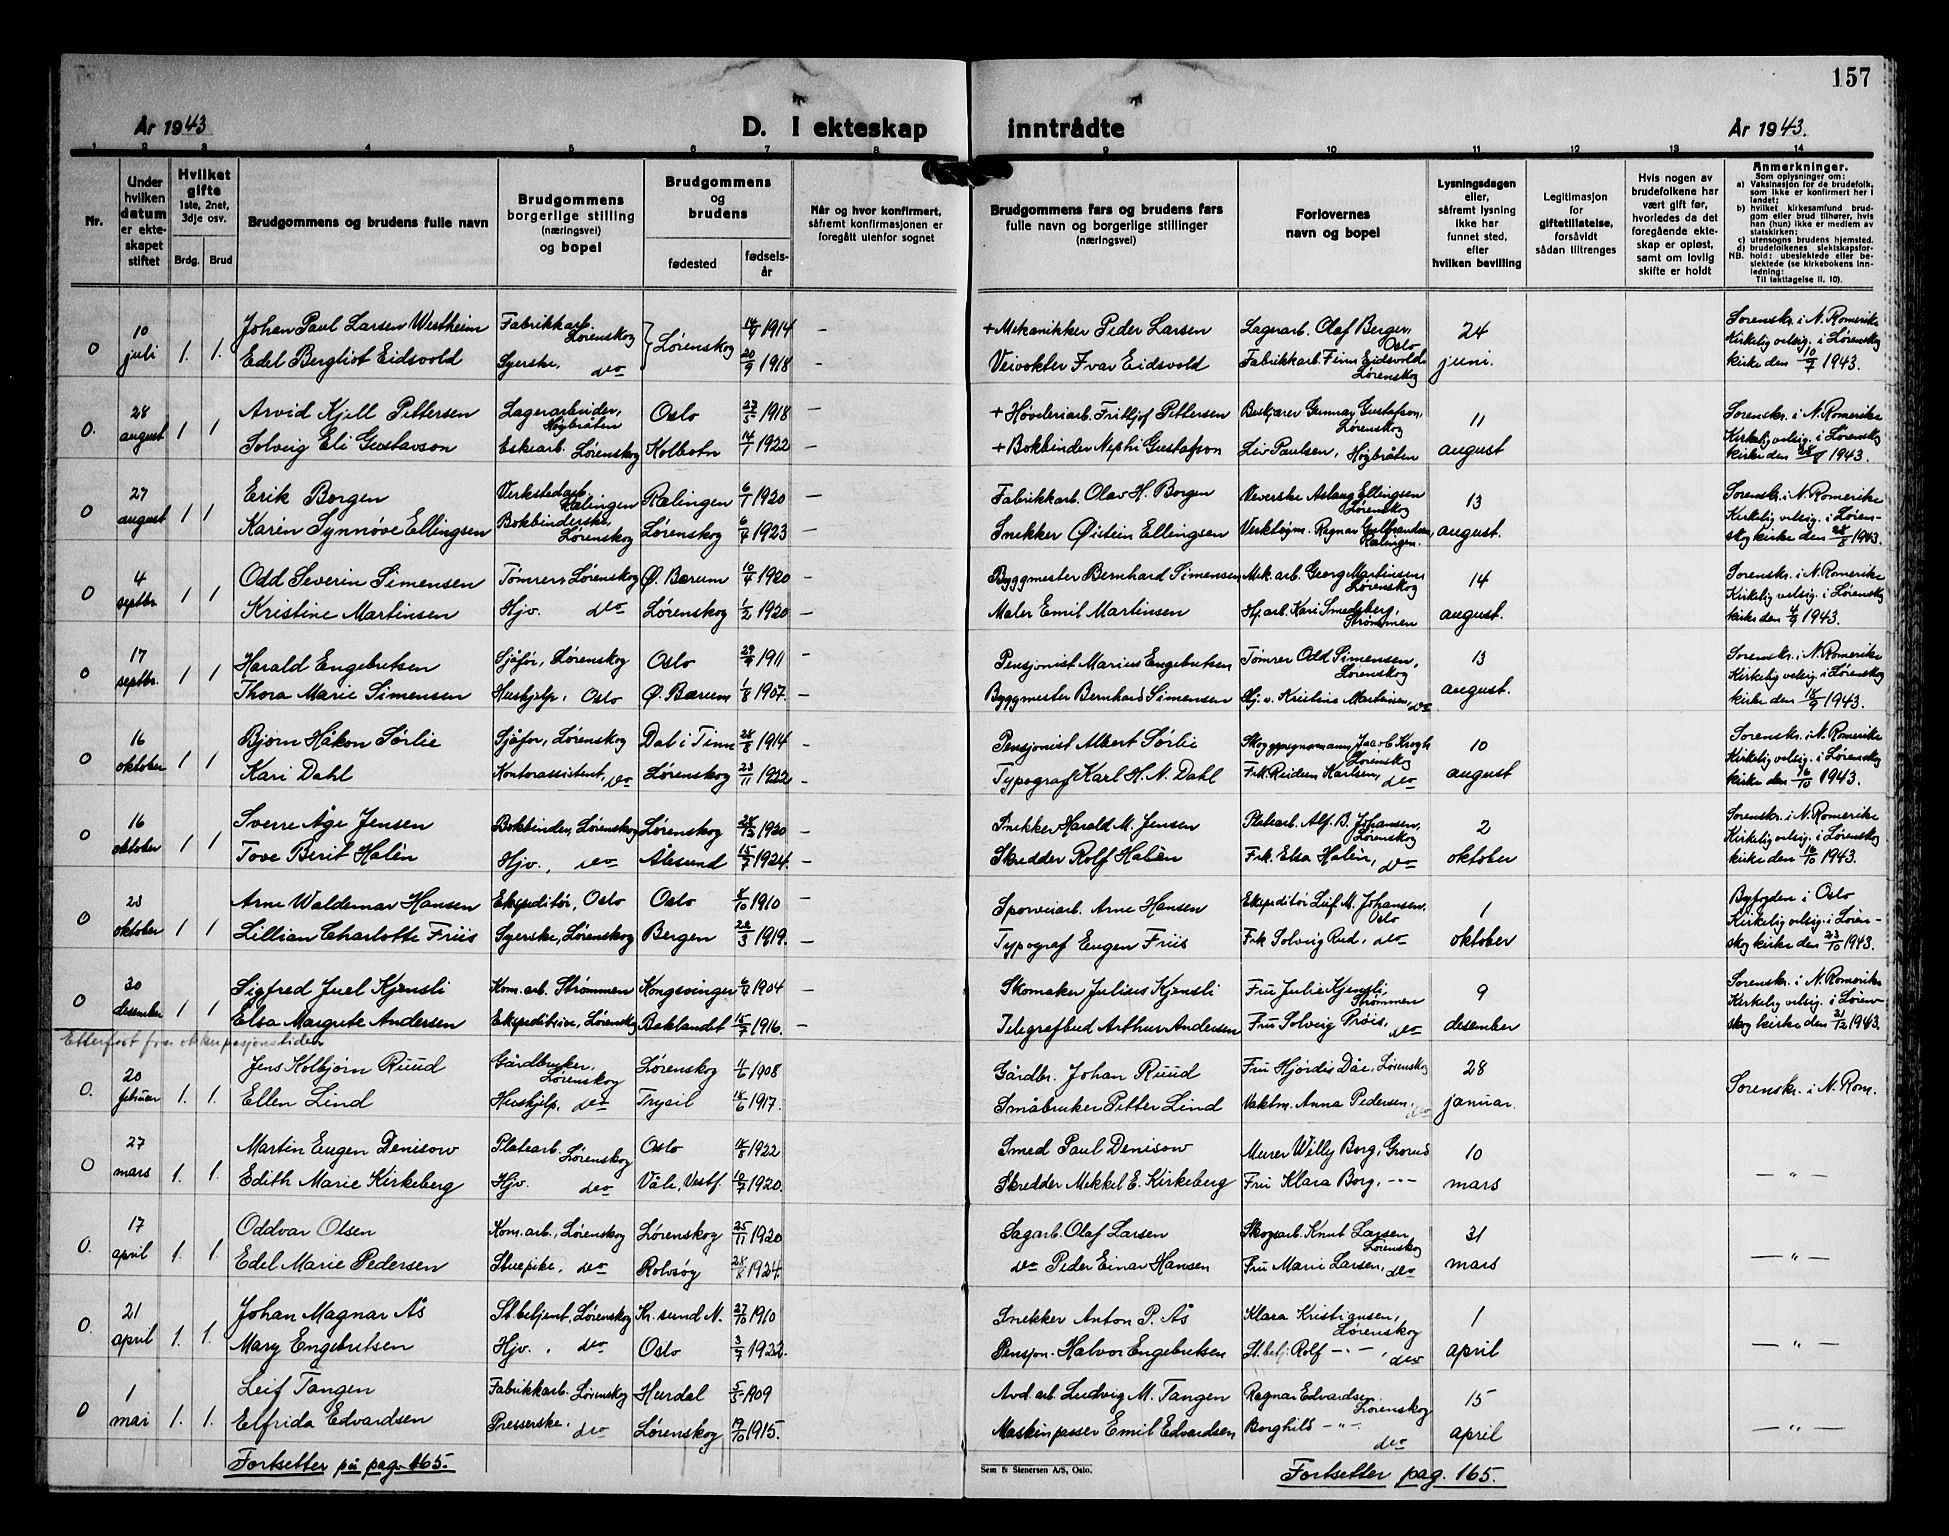 157
År 1943
D. I ekteskap inntrådte
År 1943.
1 2 3 4 5 6 7 8 9 10 11 12 13 14
Nr.
Under hvilken datum er ekteskapet stiftet
Hvilket gifte 1ste, 2net, 3dje osv.
Brdg. Brud
Brudgommens og brudens fulle navn
Brudgommens borgerlige stilling (næringsvei) og bopel
Brudgommens og brudens
fødested
fødselsår
Når og hvor konfirmert, såfremt konfirmasjonen er foregått utenfor sognet
Brudgommens fars og brudens fars fulle navn og borgerlige stillinger (næringsvei)
Forlovernes navn og bopel
Lysningsdagen eller, såfremt lysning ikke har funnet sted, efter hvilken bevilling
Legitimasjon for giftetillatelse, forsåvidt sådan tiltrenges
Hvis nogen av brudefolkene har vært gift før, hvorledes da det foregående ekteskap er opløst, samt om lovlig skifte er holdt
Anmerkninger.
Som oplysninger om:
a) Vaksinasjon for de brudefolk, som ikke er konfirmert her i landet;
b) hvilket kirkesamfund brudgom eller brud tilhører, hvis han (hun) ikke er medlem av statskirken;
c) utensogns brudens hjemsted.
d) brudefolkenes slektskapsforhold: ubeslektede eller beslektede (se kirkebokens innledning:
NB. Til iakttagelse II. 10).
0 10 juli 1. 1. Johan Paul Larsen Westheim Fabrikkarb. Lørenskog Lørenskog 1914 – + Mekanikker Peder Larsen Lagerarb. Olaf Berger, Oslo 24 juni. Sorenskr. i N. Romerike
Edel Bergliot Eidsvold Syerske, do 20/9 1918 – Veivokter Ivar Eidsvold Fabrikkarb. Finn Eidsvold Lørenskog Kirkelig velsig. i Lørenskog kirke den 10/7 1943.
0. 28 august 1 1 Arvid Kjell Pettersen Lagerarbeider, Høybråten Oslo 23/5 1918 – + Høvleriarb. Frithjof Pettersen Gunnar Gustafson, Lørenskog 11 august Sorenskr. i N. Romerike
Solveig Eli Gustavson Eskearb. Lørenskog Kolbotn 14/7 1922 – + Bokbinder Nephi Gustafson Liv Paulsen, Høybråten Kirkelig velsig. i Lørenskog kirke den 28/8 1943.
0 27 august 1 1 Erik Borgen Verkstedarb. Rælingen Rælingen 6/1 1920 – Fabrikkarb. Olav H. Borgen Veverske Aslaug Ellingsen Lørenskog 13 august. Sorenskr. i N. Romerike
Karen Synnøve Ellingsen Bokbinderske Lørenskog Lørenskog 6/4 1923 – Snekker Øistein Ellingsen Verktøym. Ragnar Gulbrandsen, Rælingen. Kirkelig velsig. i Lørenskog kirke den 28/8 1943.
0 4 septbr. 1 1 Odd Severin Simensen Tømrer, Lørenskog Ø. Bærum 10/4 1920 – Byggmester Bernhard Simensen Mek. arb. Georg Martinsen Lørenskog 14 august. Sorenskr. i N. Romerike
Kristine Martinsen Hjv. do Lørenskog 1/2 1920 – Maler Emil Martinsen Kari Smedsberg, Strømmen Kirkelig velsig. i Lørenskog kirke den 4/9 1943.
0 17 septbr. 1 1 Harald Engebretsen Sjåfør, Lørenskog Oslo 29/9 1911 Pensjonist Marius Engebretsen Tømrer Odd Simensen, Lørenskog 13 august. Sorenskr. i N. Romerike
Thora Marie Simensen Hushjelp, Oslo Ø. Bærum 1/8 1907. – Byggmester Bernhard Simensen Hj. v. Kristine Martinsen, do Kirkelig velsig. i Lørenskog kirke den 18/9 1943.
0 16 oktober 1 1 Bjørn Håkon Sørlie Sjåfør, Lørenskog Dal i Tinn 28/8 1914 – Pensjonist Albert Sørlie Jacob Krogh Lørenskog 10 august Sorenskr. i N. Romerike
Kari Dahl Kontorassistent, do Lørenskog 23/11 1922 – Typograf Karl H. N. Dahl Frk. Reidun Karlsen, do Kirkelig velsig. i Lørenskog kirke den 16/10 1943.
0 16 oktober 1 1 Sverre Åge Jensen Bokbinder, Lørenskog Lørenskog 28/12 1920 – Snekker Harald M. Jensen Platearb. Alf. B. Johansen, Lørenskog 2 oktober Sorenskr. i N. Romerike
Tove Berit Halèn Hjv., do Ålesund 15/7 1924. – Skredder Rolf Halèn Frk. Elsa Halèn, do Kirkelig velsig. i Lørenskog kirke den 16/10 1943.
0 23 oktober 1 1 Arne Waldemar Hansen Ekspeditør, Oslo Oslo 1910 – Sporveiarb. Arne Hansen Ekspeditør Leif M. Johansen, Oslo 1 oktober Byfogden i Oslo
Lillian Charlotte Friis Syerske, Lørenskog Bergen 1919. – Typograf Eugen Friis Frk Solveig Rud, do Kirkelig velsig. i Lørenskog kirke den 23/10 1943.
0 30 desember 1 1 Sigfred Juel Kjensli Kom. arb. Strømmen Kongsvinger 1904 – Skomaker Julius Kjensli Fru Julie Kjensli, Strømmen 9 desember Sorenskr. i N. Romerike
Elsa Margrete Andersen Ekspeditrise, Lørenskog Baklandet 15/7 1916. – Telegrafbud Arthur Andersen Fru Solveig Prøis, do Kirkelig velsig. i Lørenskog kirke den 31/12 1943.
Etterført fra okkupasjonstiden
0. 20 februar 1. 1. Jens Kolbjørn Ruud Gårdbruker, Lørenskog Lørenskog 1908 Gårdbr. Johan Ruud Fru Hjørdis Dåe, Lørenskog 28 januar. Sorenskr. i N. Rom.
Ellen Lind Hushjelp, do Trysil 1917. Småbruker Petter Lind Vaktm. Anna Pedersen, do
0 27 mars 1. 1. Martin Eugen Denisow Platearb. Lørenskog Oslo 1922 Smed Paul Denisow Murer Willy Borg, Grorud 10 mars — " —
Edith Marie Kirkeberg Hjv. do Våle, Vestf. 10/7 1920. Skredder Mikkel E. Kirkeberg Fru Klara Borg, - " -
0. 17 april 1. 1. Oddvar Olsen Kom. arb., Lørenskog Lørenskog 25/11 1920 Sagarb. Olaf Larsen Skogsarb. Knut Larsen, Lørenskog 31 mars — " —
Edel Marie Pedersen Stuepike, do Rolvsøy 28/8 1924. do Peder Einar Hansen Fru Marie Larsen, do
0. 21 april 1. 1. Johan Magnar Ås St.betjent, Lørenskog Kr. sund N. 27/10 1910 Snekker Anton P. Ås Klara Kristiansen, Lørenskog 1 april — " —
Mary Engebretsen Hjv., do Oslo 3/7 1922. Pensjon. Halvor Engebretsen St.betj. Rolf - " -, do
0 1 mai 1. 1. Leif Tangen Fabrikkarb. Lørenskog Hurdal 5/5 1909 Avd. arb. Ludvig M. Tangen Ragnar Edvardsen Lørenskog 15 april — " —
Elfrida Edvardsen Presserske, do Lørenskog 19/10 1915. Maskinpasser Emil Edvardsen Borghild - " - do
Fortsetter på pag. 165.
Sem & Stenersen A/S, Oslo.
Fortsetter pag. 165.